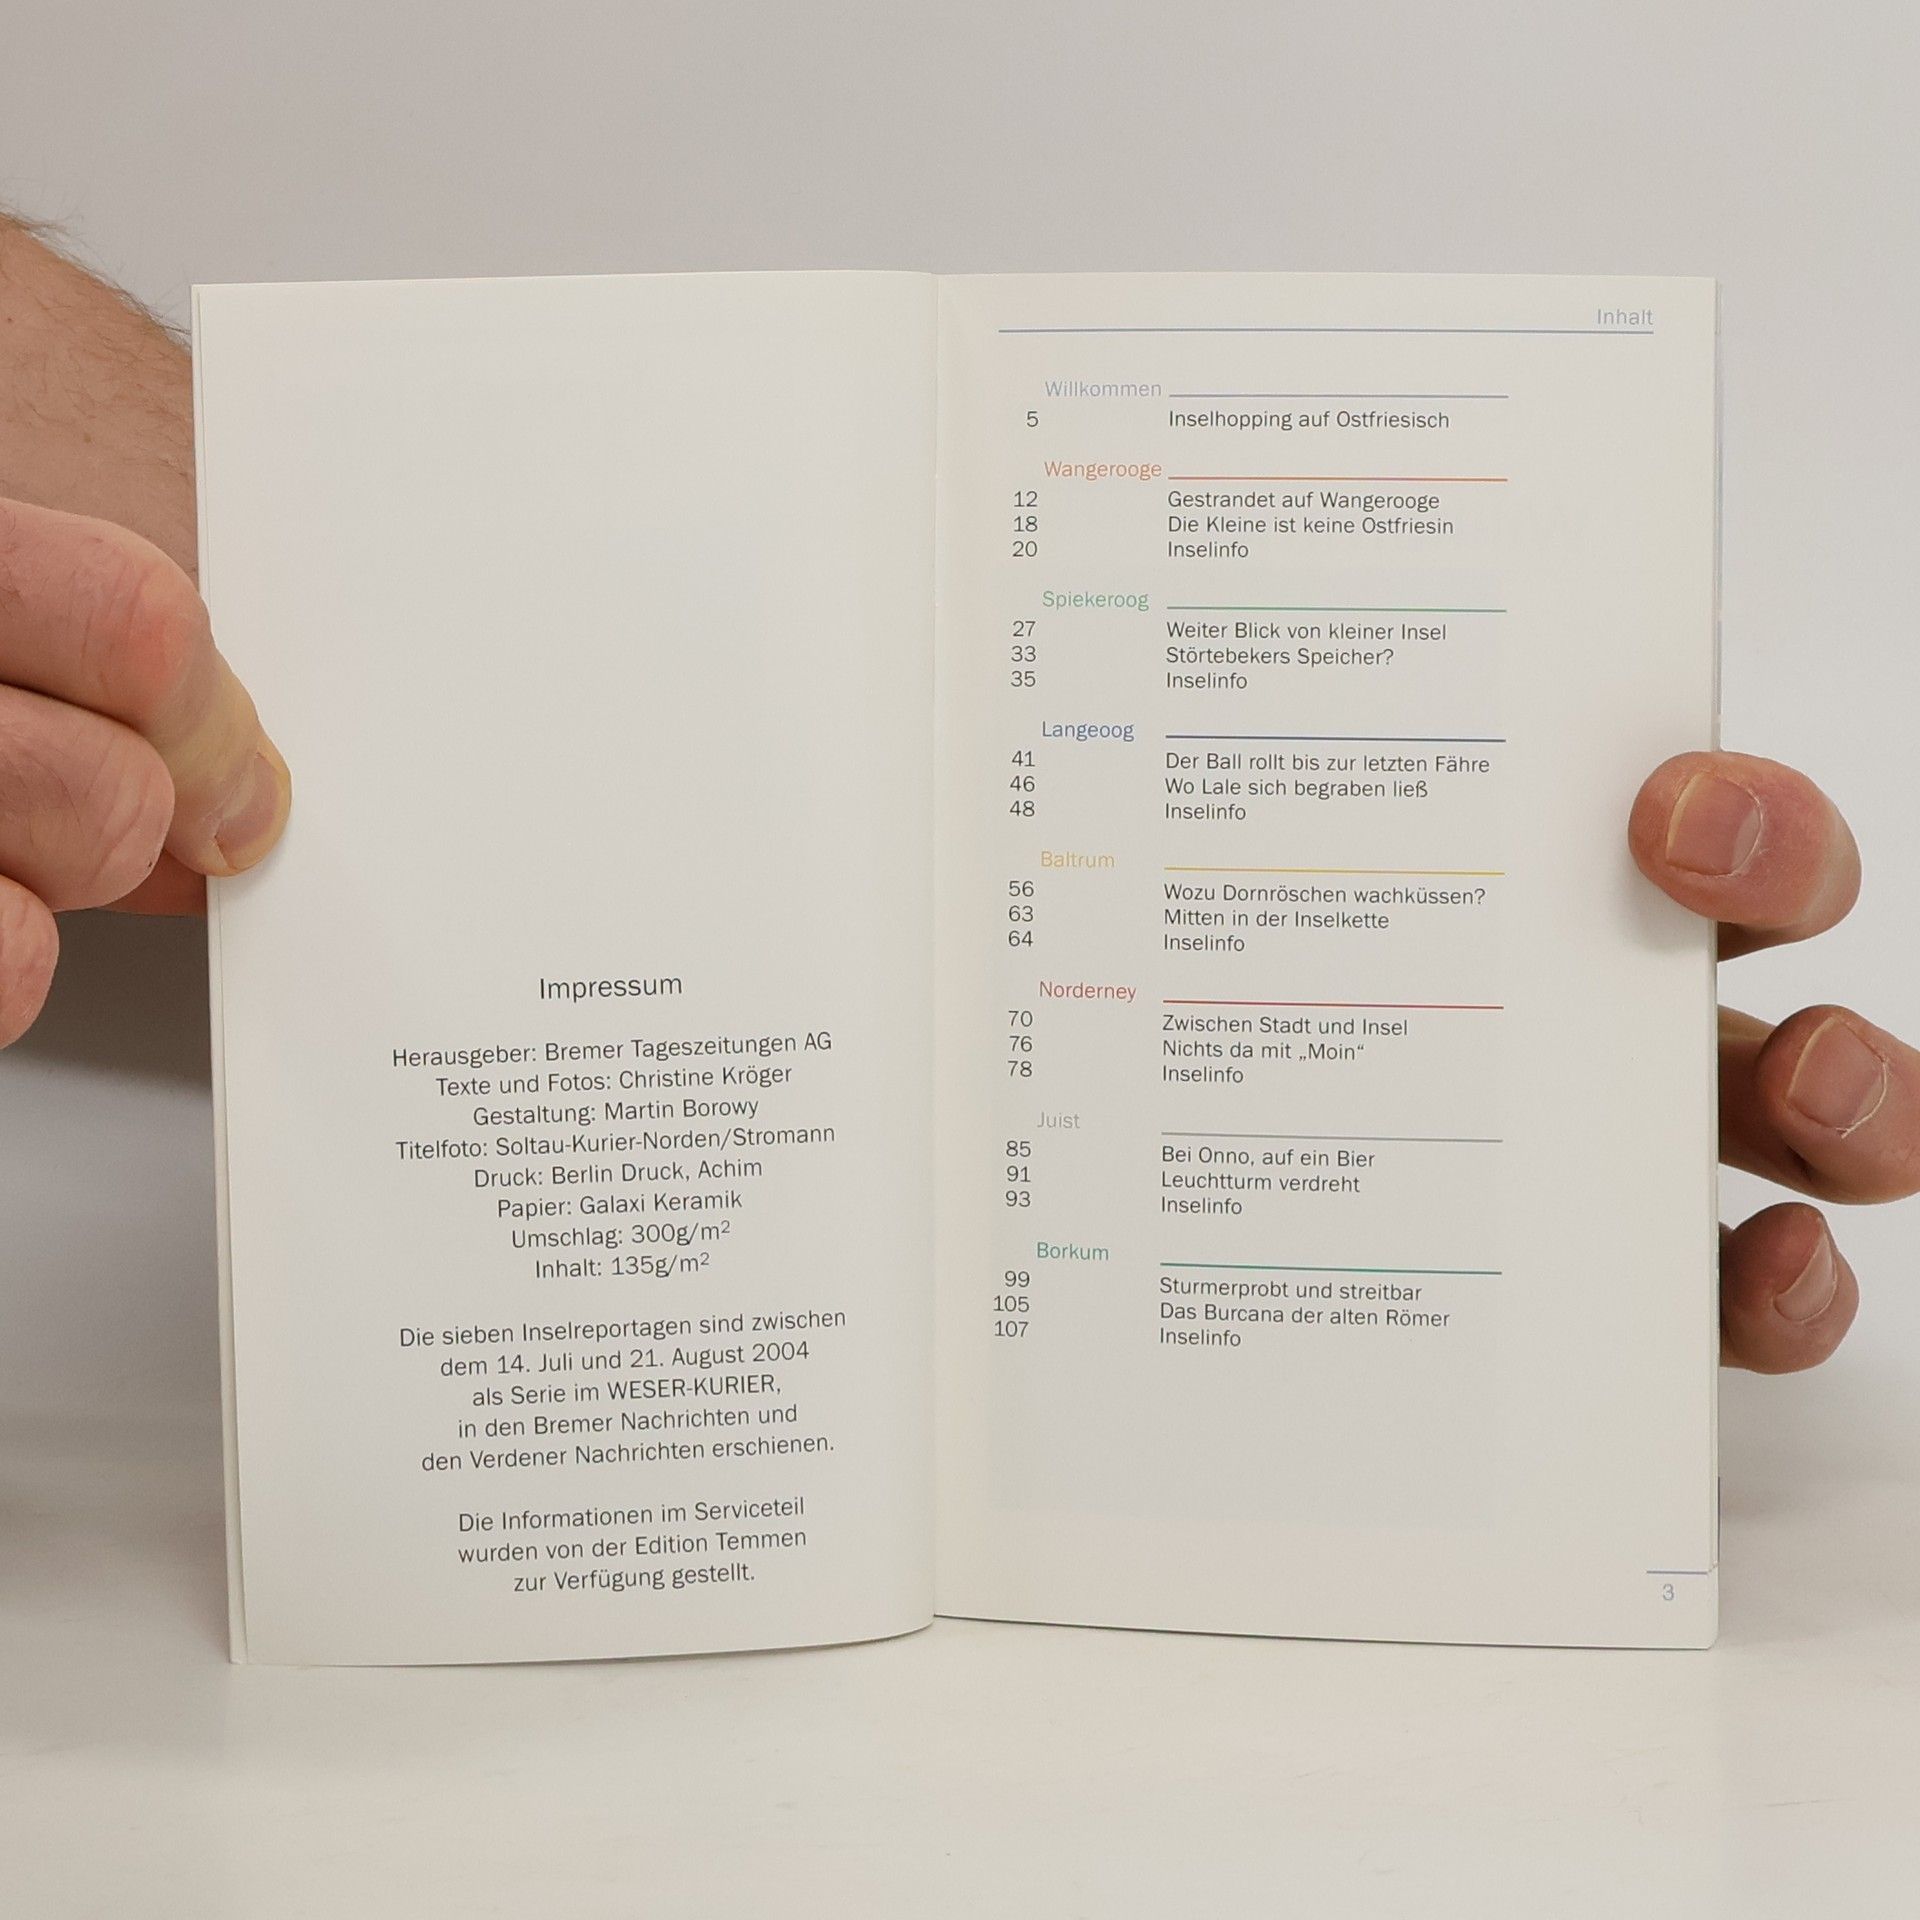 Impressum
Herausgeber: Bremer Tageszeitungen AG
Texte und Fotos: Christine Kröger
Gestaltung: Martin Borowy
Titelfoto: Soltau-Kurier-Norden/Stromann
Druck: Berlin Druck, Achim
Papier: Galaxi Keramik
Umschlag: 300g/m²
Inhalt: 135g/m²
Die sieben Inselreportagen sind zwischen
dem 14. Juli und 21. August 2004
als Serie im WESER-KURIER,
in den Bremer Nachrichten und
den Verdener Nachrichten erschienen.
Die Informationen im Serviceteil
wurden von der Edition Temmen
zur Verfügung gestellt.
Inhalt
Willkommen
5 Inselhopping auf Ostfriesisch
Wangerooge
12 Gestrandet auf Wangerooge
18 Die Kleine ist keine Ostfriesin
20 Inselinfo
Spiekeroog
27 Weiter Blick von kleiner Insel
33 Störtebekers Speicher?
35 Inselinfo
Langeoog
41 Der Ball rollt bis zur letzten Fähre
46 Wo Lale sich begraben ließ
48 Inselinfo
Baltrum
56 Wozu Dornröschen wachküssen?
63 Mitten in der Inselkette
64 Inselinfo
Norderney
70 Zwischen Stadt und Insel
76 Nichts da mit „Moin“
78 Inselinfo
Juist
85 Bei Onno, auf ein Bier
91 Leuchtturm verdreht
93 Inselinfo
Borkum
99 Sturmerprobt und streitbar
105 Das Burcana der alten Römer
107 Inselinfo
3